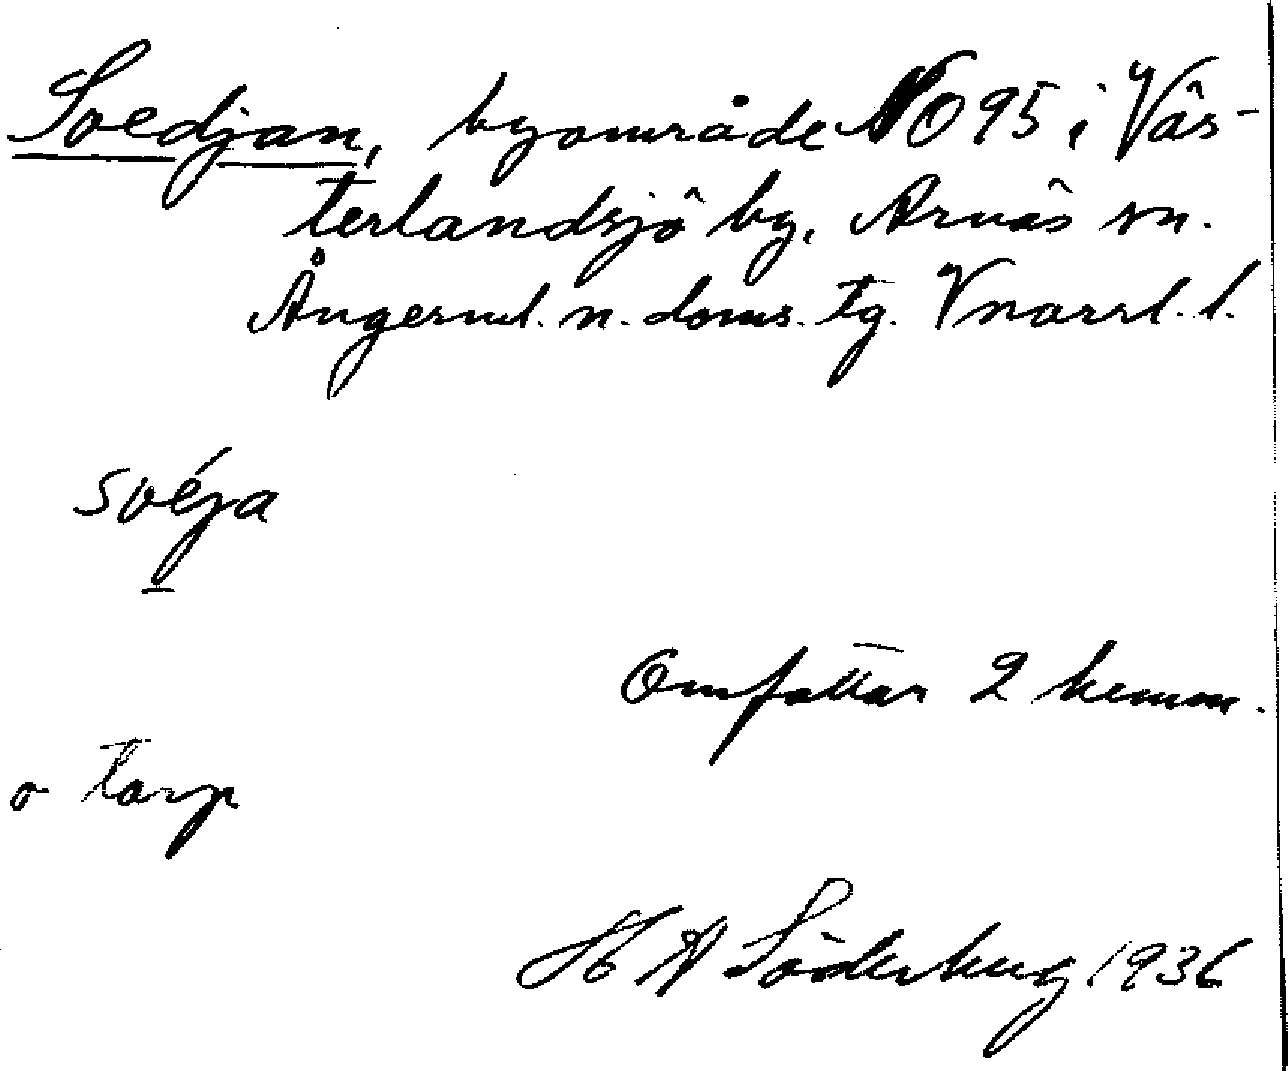 Svedjan, byområde NO 95 i Väs-
terlandsjö by, Arnäs sn.
Ångerml. n. doms. tg. Vnorrl. l.
svéja
Omfattar 2 hemm.
o torp
H A Söderberg 1936